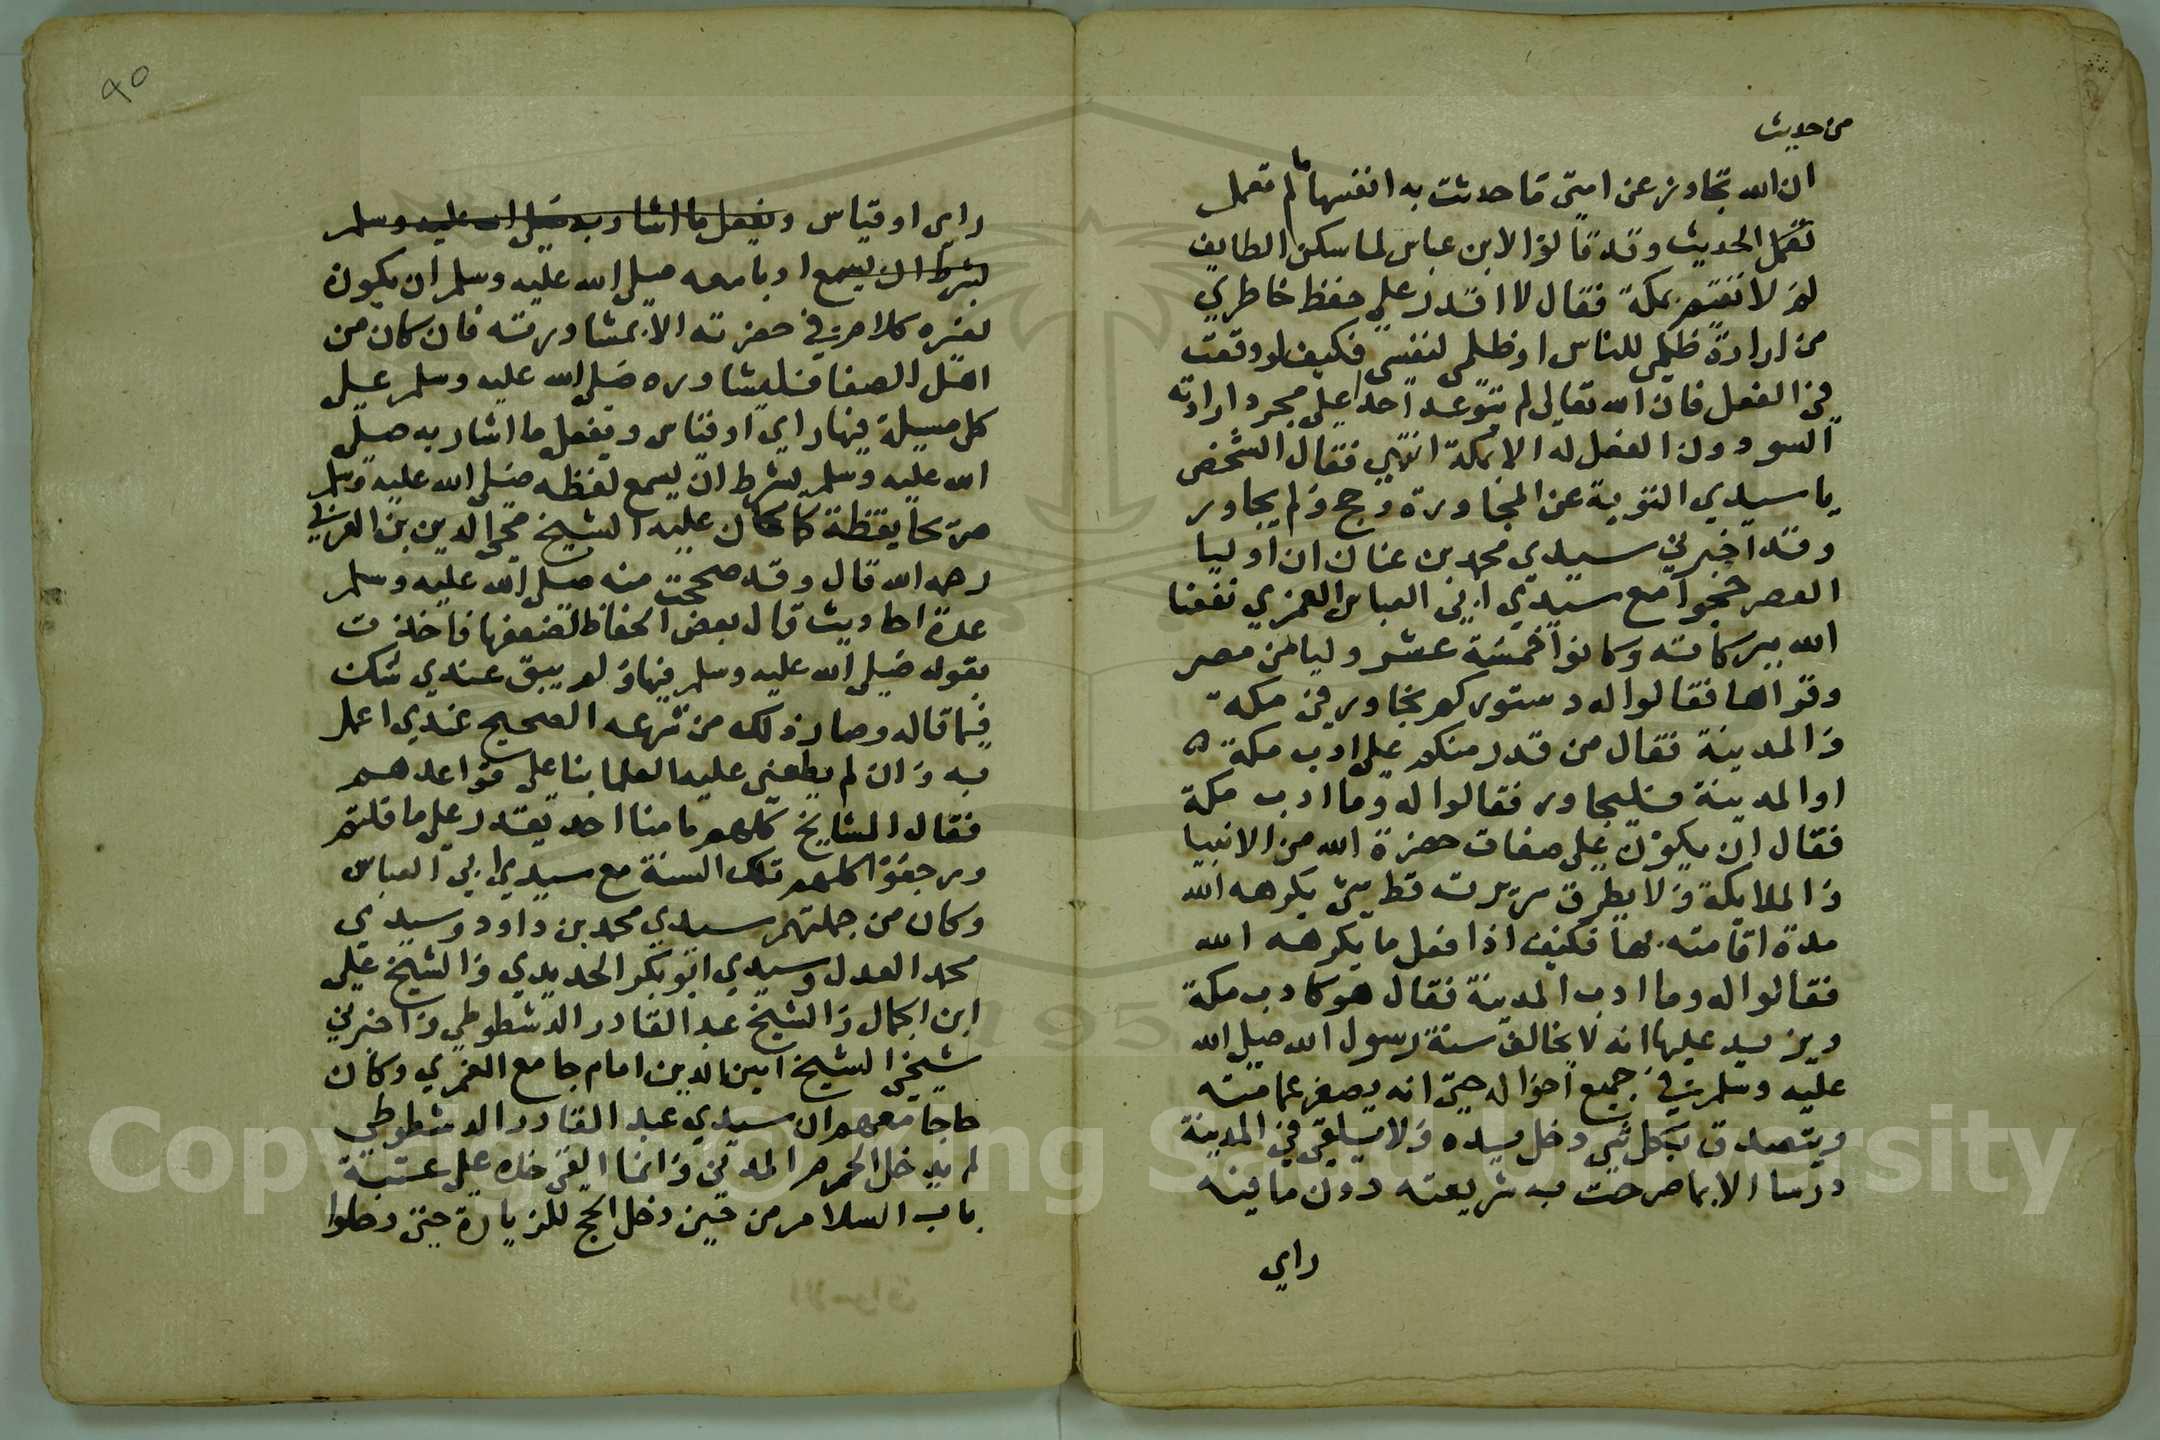 من حديث
ان الله تجاوز عن امتي ما حدثت به انفسها ما لم تعمل
تعمل الحديث وقد قالوا لابن عباس لما سكن الطايف
لم لا تقيم بمكة فقال لا اقدر علي حفظ خاطري
من ارادة ظلمي للناس او ظلمي لنفسي فكيف لو وقعت
في الفعل فان الله تعالي لم يتوعد احدا علي مجرد ارادته
السو دون الفعل له الا بمكة انتهي فقال الشخص
يا سيدي التوبة عن المجاورة وحج ولم يجاور
وقد اخبرني سيدي محمد بن عنان ان اوليا
العصر حجوا مع سيدي ابي العباس الغمري نفعنا
الله ببركاته وكانوا خمسة عشر وليا من مصر
وقراها فقالوا له دستوركم نجاور في مكة
والمدينة فقال من قدر منكم علي ادب مكة
او المدينة فليجاور فقالوا له وما ادب مكة
فقال ان يكون علي صفات حضرة الله من الانبيا
والملايكة ولا يطرق سريرته قط شي يكرهه الله
مدة اقامته بها فكيف اذا فعل ما يكرهه الله
فقالوا له وما ادب المدينة فقال هو كادب مكة
ويزيد عليها انه لا يخالف سنة رسول الله صلي الله
عليه وسلم في جميع احواله حتي انه يصغر عمامته
ويتصدق بكل شي دخل يده ولا يلقي في المدينة
درسا الا بما صرحت به شريعته دون ما فيه
راي
٩٥
راي او قياس ويفعل ما اشار به صلي الله عليه وسلم
بشرط ان يسمع ادبا معه صلي الله عليه وسلم ان يكون
لغيره كلام في حضرته الا بمشاورته فان كان من
اهل الصفا فليشاوره صلي الله عليه وسلم علي
كل مسيلة فيها راي او قياس ويفعل ما اشار به صلي
الله عليه وسلم بشرط ان يسمع لفظه صلي الله عليه وسلم
صريحا يقظة كما كان عليه الشيخ محي الدين بن العربي
رحمه الله قال وقد صححت منه صلي الله عليه وسلم
عدة احاديث قال بعض الحفاظ لضعفها فاخذت
بقوله صلي الله عليه وسلم فيها ولم يبق عندي شك
فيما قاله وصار ذلك من شرعه الصحيح عندي اعمل
به وان لم يطعني عليه العلما بنا علي قواعدهم
فقال المشايخ كلهم ما منا احد يقدر علي ما قلتم
ورجعوا كلهم تلك السنة مع سيدي ابي العباس
وكان من جملتهم سيدي محمد بن داود وسيدي
محمد العدل وسيدي ابو بكر الحديدي والشيخ علي
ابن الجمال والشيخ عبد القادر الدشطوطي واخبرني
شيخي الشيخ امين الدين امام جامع الغمري وكان
حاجا معهم ان سيدي عبد القادر الدشطوطي
لم يدخل الحرم المدني وانما القي خده علي عتبة
باب السلام من حين دخل الحج للزيارة حتي رحلوا
Copyright © King Saud University
1957